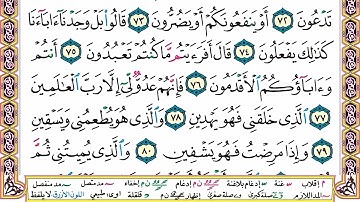 تَدْعُونَ ﴿٧٢﴾ أَوْ يَنفَعُونَكُمْ أَوْ يَضُرُّونَ ﴿٧٣﴾ قَالُوا۟ بَلْ وَجَدْنَآ ءَابَآءَنَا
كَذَٰلِكَ يَفْعَلُونَ ﴿٧٤﴾ قَالَ أَفَرَءَيْتُم مَّا كُنتُمْ تَعْبُدُونَ ﴿٧٥﴾ أَنتُمْ
وَءَابَآؤُكُمُ ٱلْأَقْدَمُونَ ﴿٧٦﴾ فَإِنَّهُمْ عَدُوٌّ لِّىٓ إِلَّا رَبَّ ٱلْعَٰلَمِينَ
﴿٧٧﴾ ٱلَّذِى خَلَقَنِى فَهُوَ يَهْدِينِ ﴿٧٨﴾ وَٱلَّذِى هُوَ يُطْعِمُنِى وَيَسْقِينِ
﴿٧٩﴾ وَإِذَا مَرِضْتُ فَهُوَ يَشْفِينِ ﴿٨٠﴾ وَٱلَّذِى يُمِيتُنِى ثُمَّ